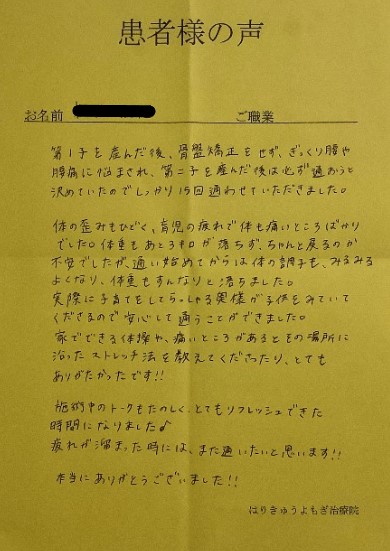 患者様の声
お名前 ご職業
第1子を産んだ後、骨盤矯正をせず、ぎっくり腰や
腰痛に悩まされ、第二子を産んだ後は必ず通おうと
決めていたのでしっかり15回通わせていただきました。
体の歪みもひどく、育児の疲れで体も痛いところばかり
でした。体重もあと3キロが落ちず、ちゃんと戻るのか
不安でしたが、通い始めてからは体の調子も、みるみる
よくなり、体重もすんなりと落ちました。
実際に子育てをしてらっしゃる奥様が子供をみていて
くださるので安心して通うことができました。
家でできる体操や、痛いところがあるとその場所に
沿ったストレッチ法を教えてくださったり、とても
ありがたかったです!!
施術中のトークもたのしく、とてもリフレッシュできた
時間になりました♪
疲れが溜まった時には、また通いたいと思います!!
本当にありがとうございました!!
はりきゅうよもぎ治療院